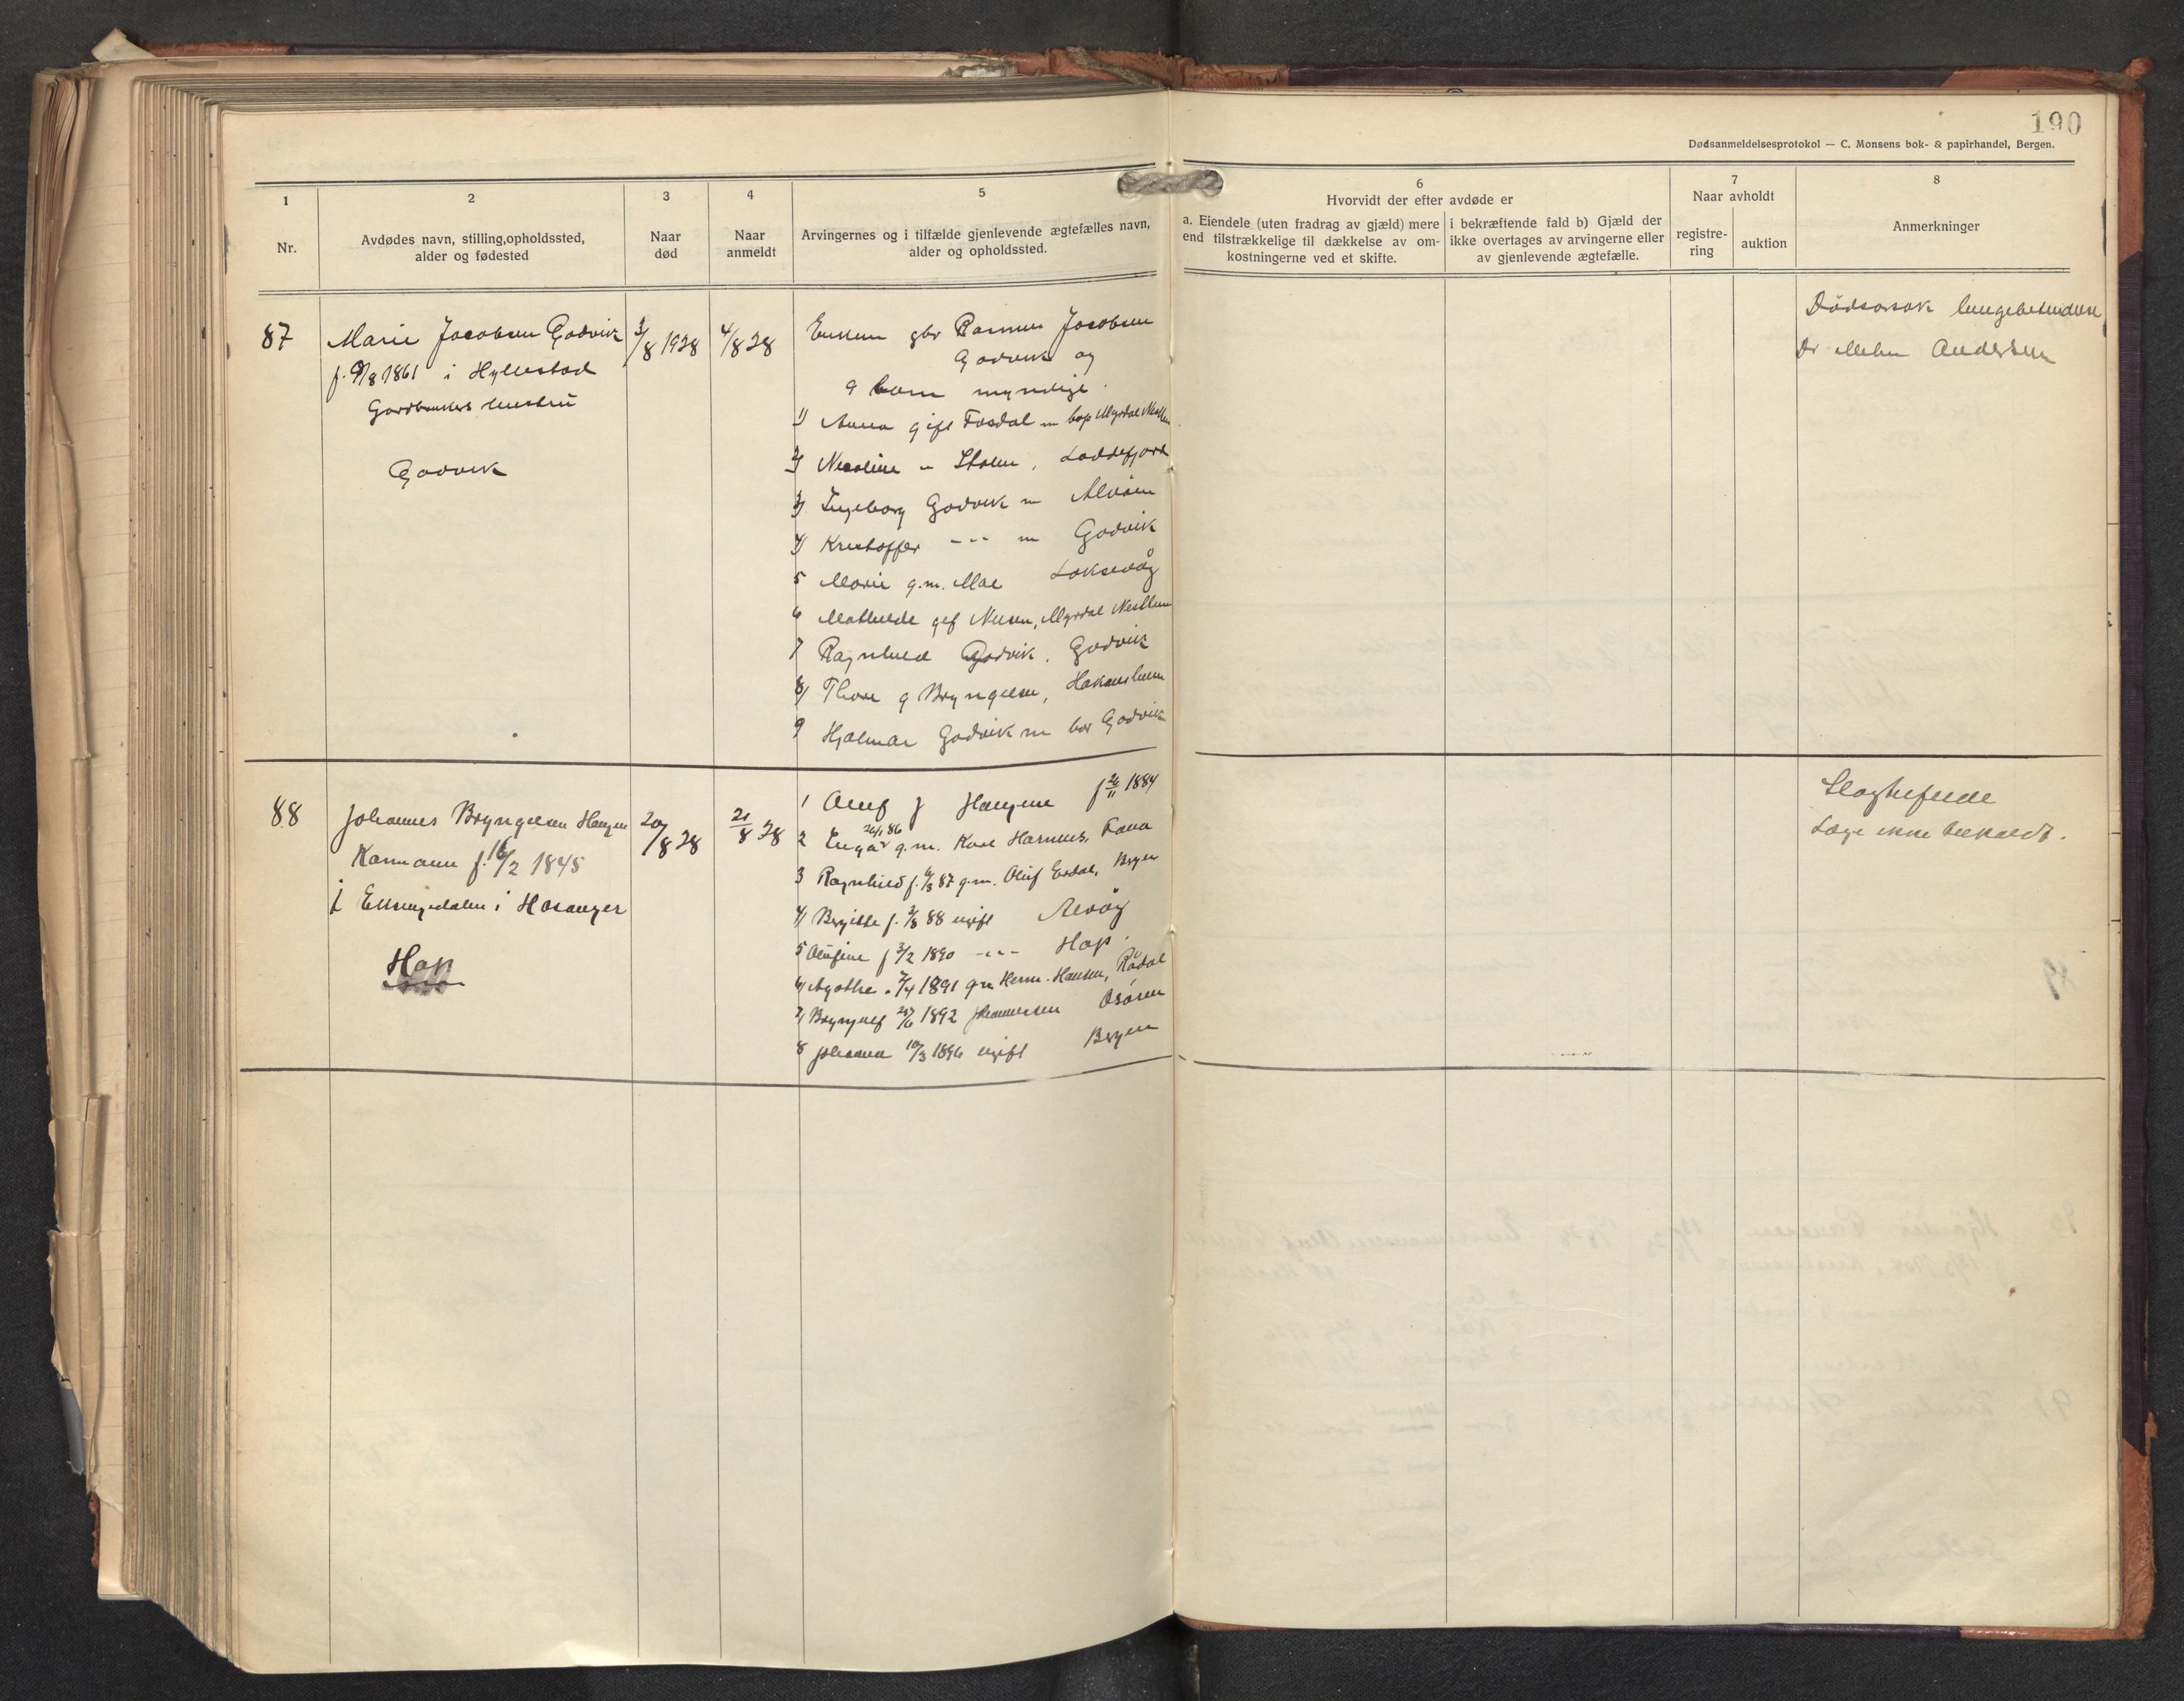 190
Dødsanmeldelsesprotokol — C. Monsens bok- & papirhandel, Bergen.
1
Nr.
2
Avdødes navn, stilling, opholdssted,
alder og fødested
3
Naar
død
4
Naar
anmeldt
5
Arvingernes og i tilfælde gjenlevende ægtefælles navn,
alder og opholdssted.
6
Hvorvidt der efter avdøde er
a. Eiendele (uten fradrag av gjæld) mere
end tilstrækkelige til dækkelse av om-
kostningerne ved et skifte.
i bekræftende fald b) Gjæld der
ikke overtages av arvingerne eller
av gjenlevende ægtefælle.
7
Naar avholdt
registre-
ring
auktion
8
Anmerkninger
87
Marie Jacobsen Godvik
f. 9/8 1861 i Hyllestad
Gardbrukers hustru
Godvik
3/8 1928
4/8 28
Enkem gbr Rasmus Jacobsen
Godvik og
9 barn myndige.
1) Anna gift Fosdal
2) Nicoline Stolen, Loddefjord
3) Ingeborg Godvik Alvøen
4) Kristoffer -"- Godvik
5 Marie g.m. Moe Laksevåg
6 Mathilde Myrdal
7 Ragnhild Godvik. Godvik
8) Thora g Bryngelsen, Håkonshella
9 Hjalmar Godvik bor Godvik
Dødsårsak lungebetendelse
Dr Andersen
88
Johannes Bryngelsen Haugen
Kårmann f. 16/2 1845
i Eksingedalen i Hosanger
Hop
20/8 28
21/8 28
1 Oluf J Haugene f 26/11 1884
2 Inga 86 g.m. Fana
3 Ragnhild f. 87 g.m. Oluf Bergen
4) Birgitte f. 3/8 88 ugift
5 Olufine f 3/2 1890 -"- Hop.
6) Agathe 7/4 1891 Herm. Hansen, Rådal
7) Bryngulf 1892 Johannessen Osøren
8 Johanna 10/3 1896 ugift Bergen
Slagtilfelde
Læge ikke tilkaldt.